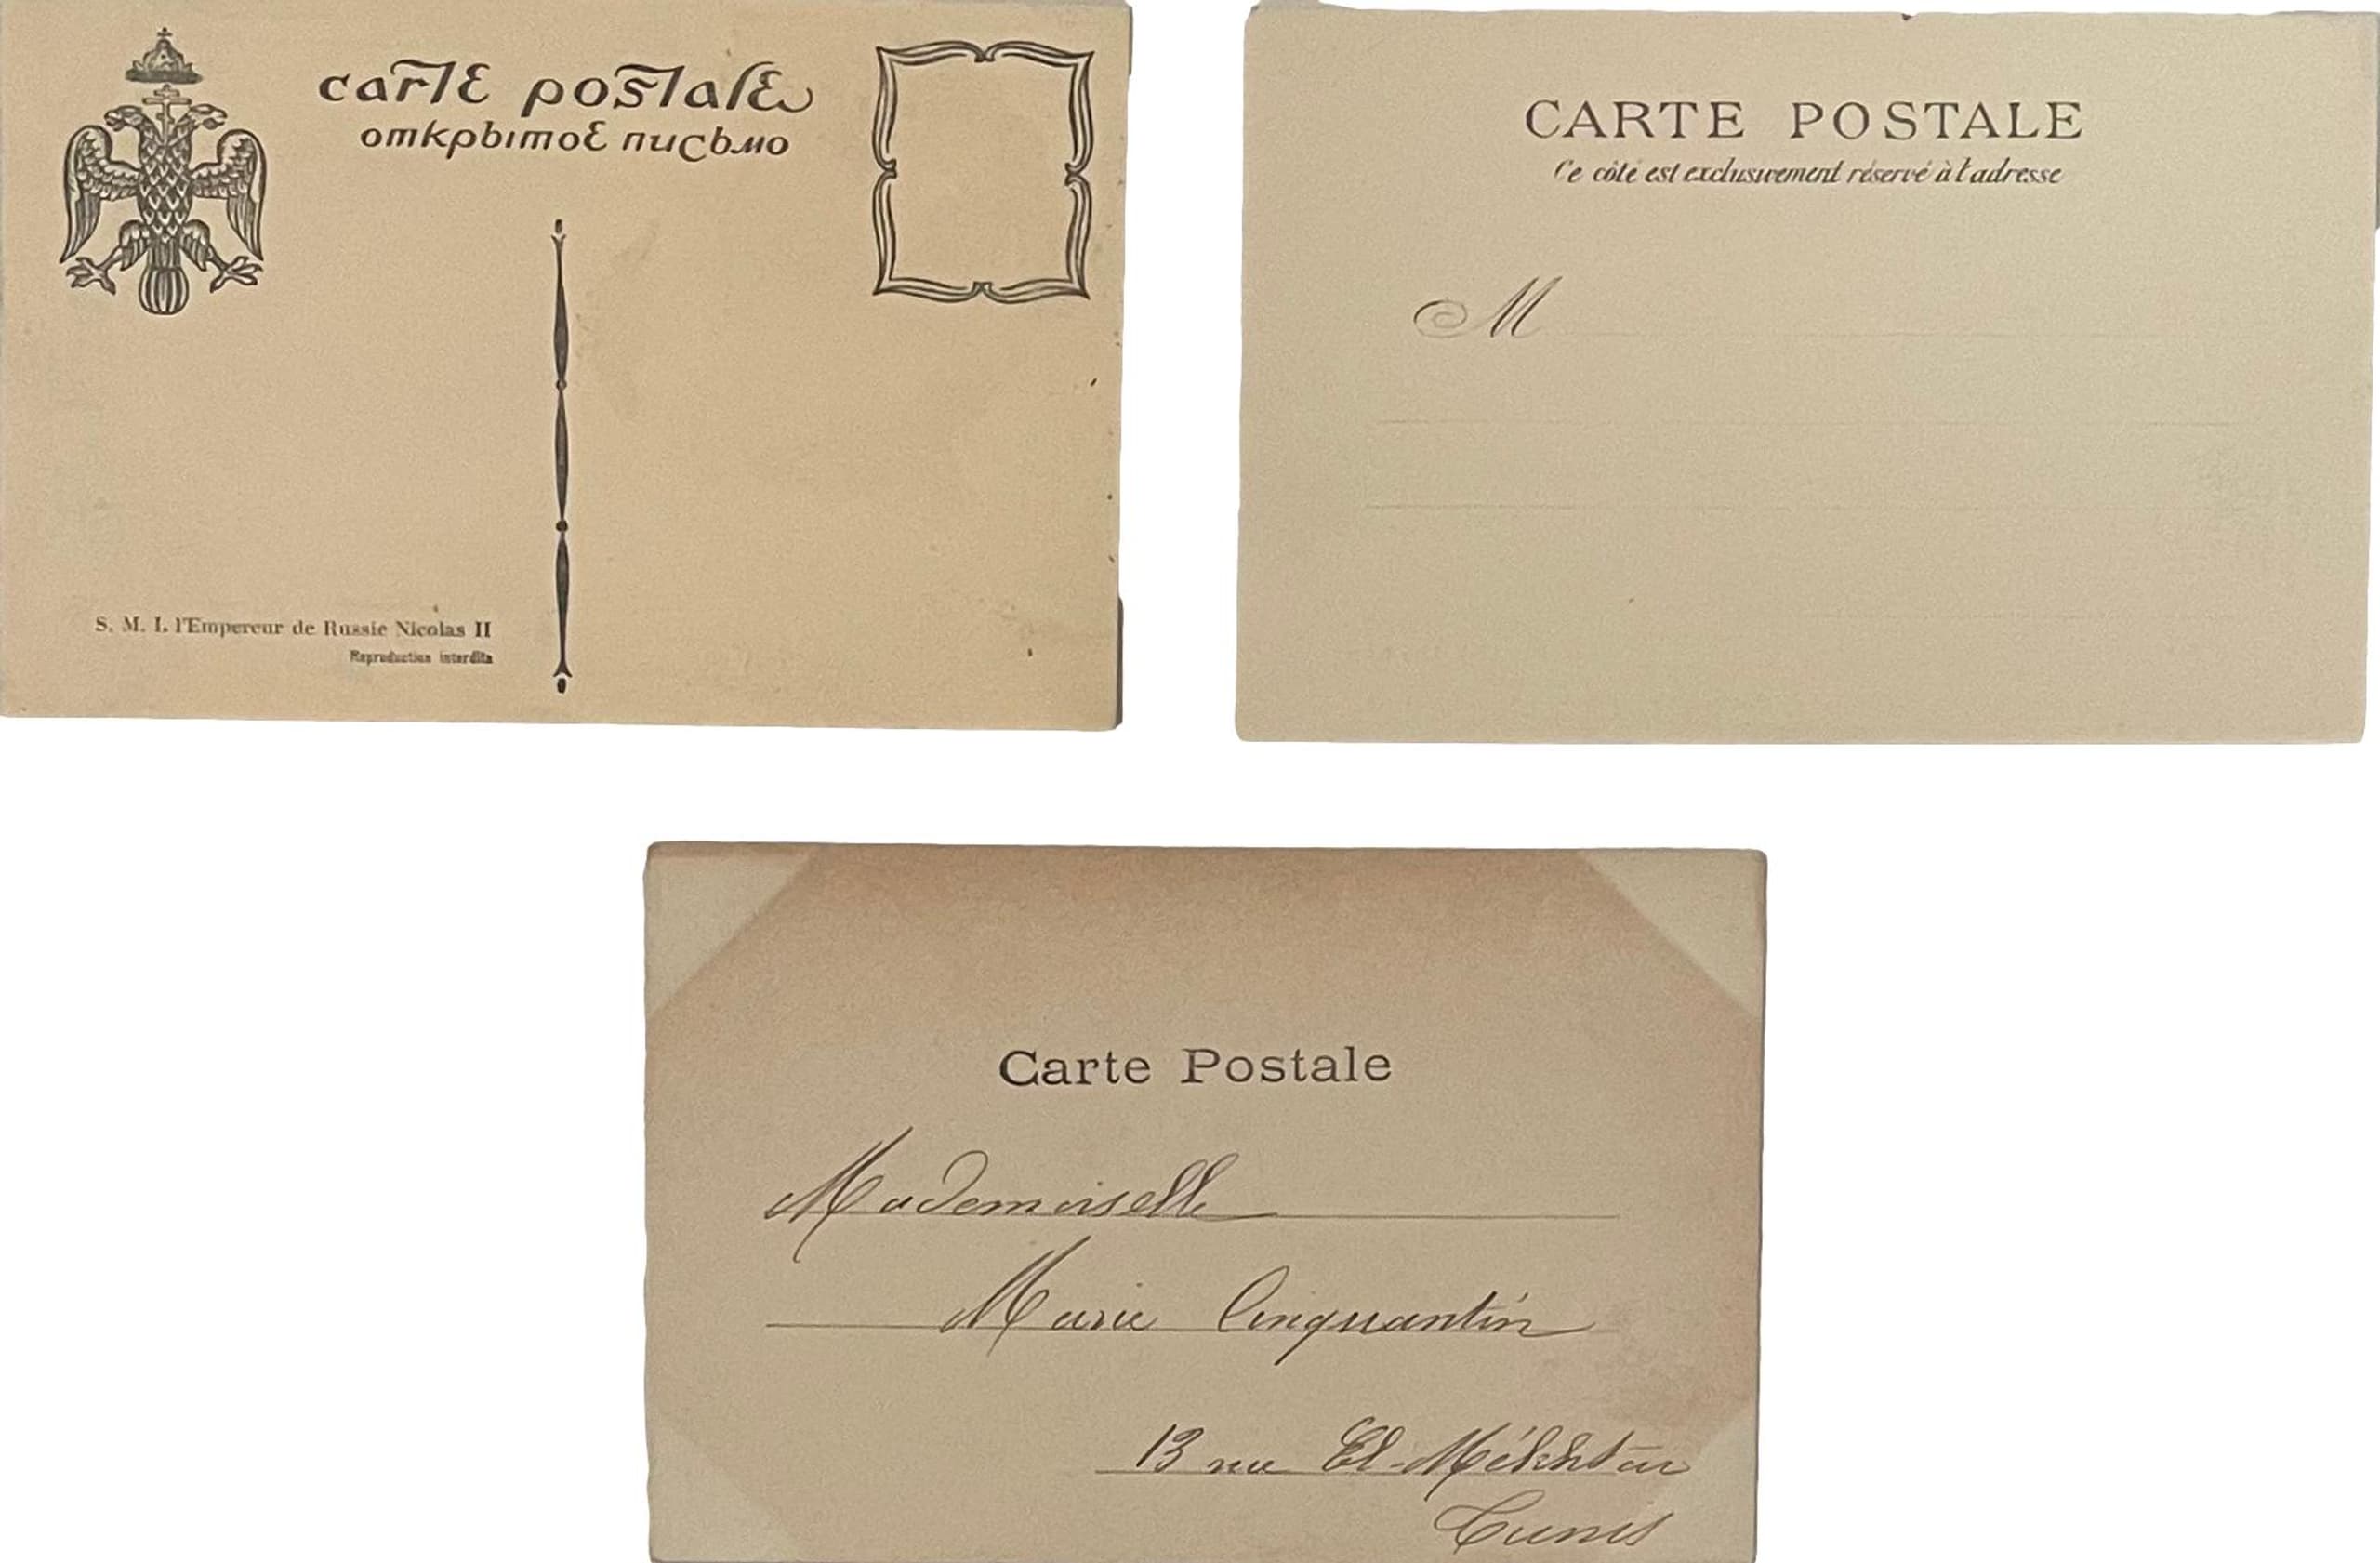 carte postale
открытое письмо
S. M. I. l'Empereur de Russie Nicolas II
Reproduction interdite
CARTE POSTALE
Ce côté est exclusivement réservé à l'adresse
M
Carte Postale
Mademoiselle
Marie Cinquantin
13 rue El-Mékhtar
Tunis